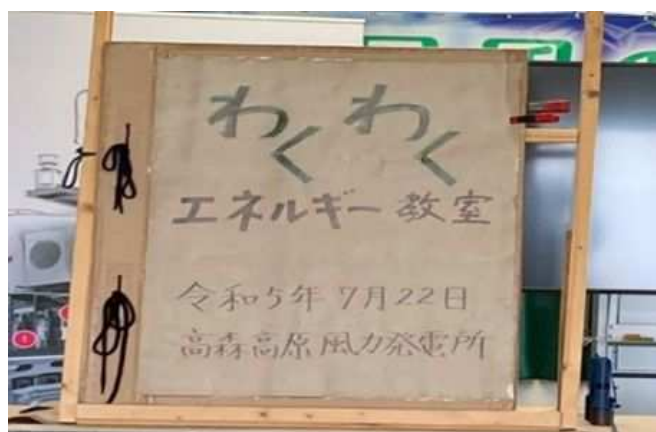 わくわく
エネルギー教室
令和5年7月22日
高森高原風力発電所